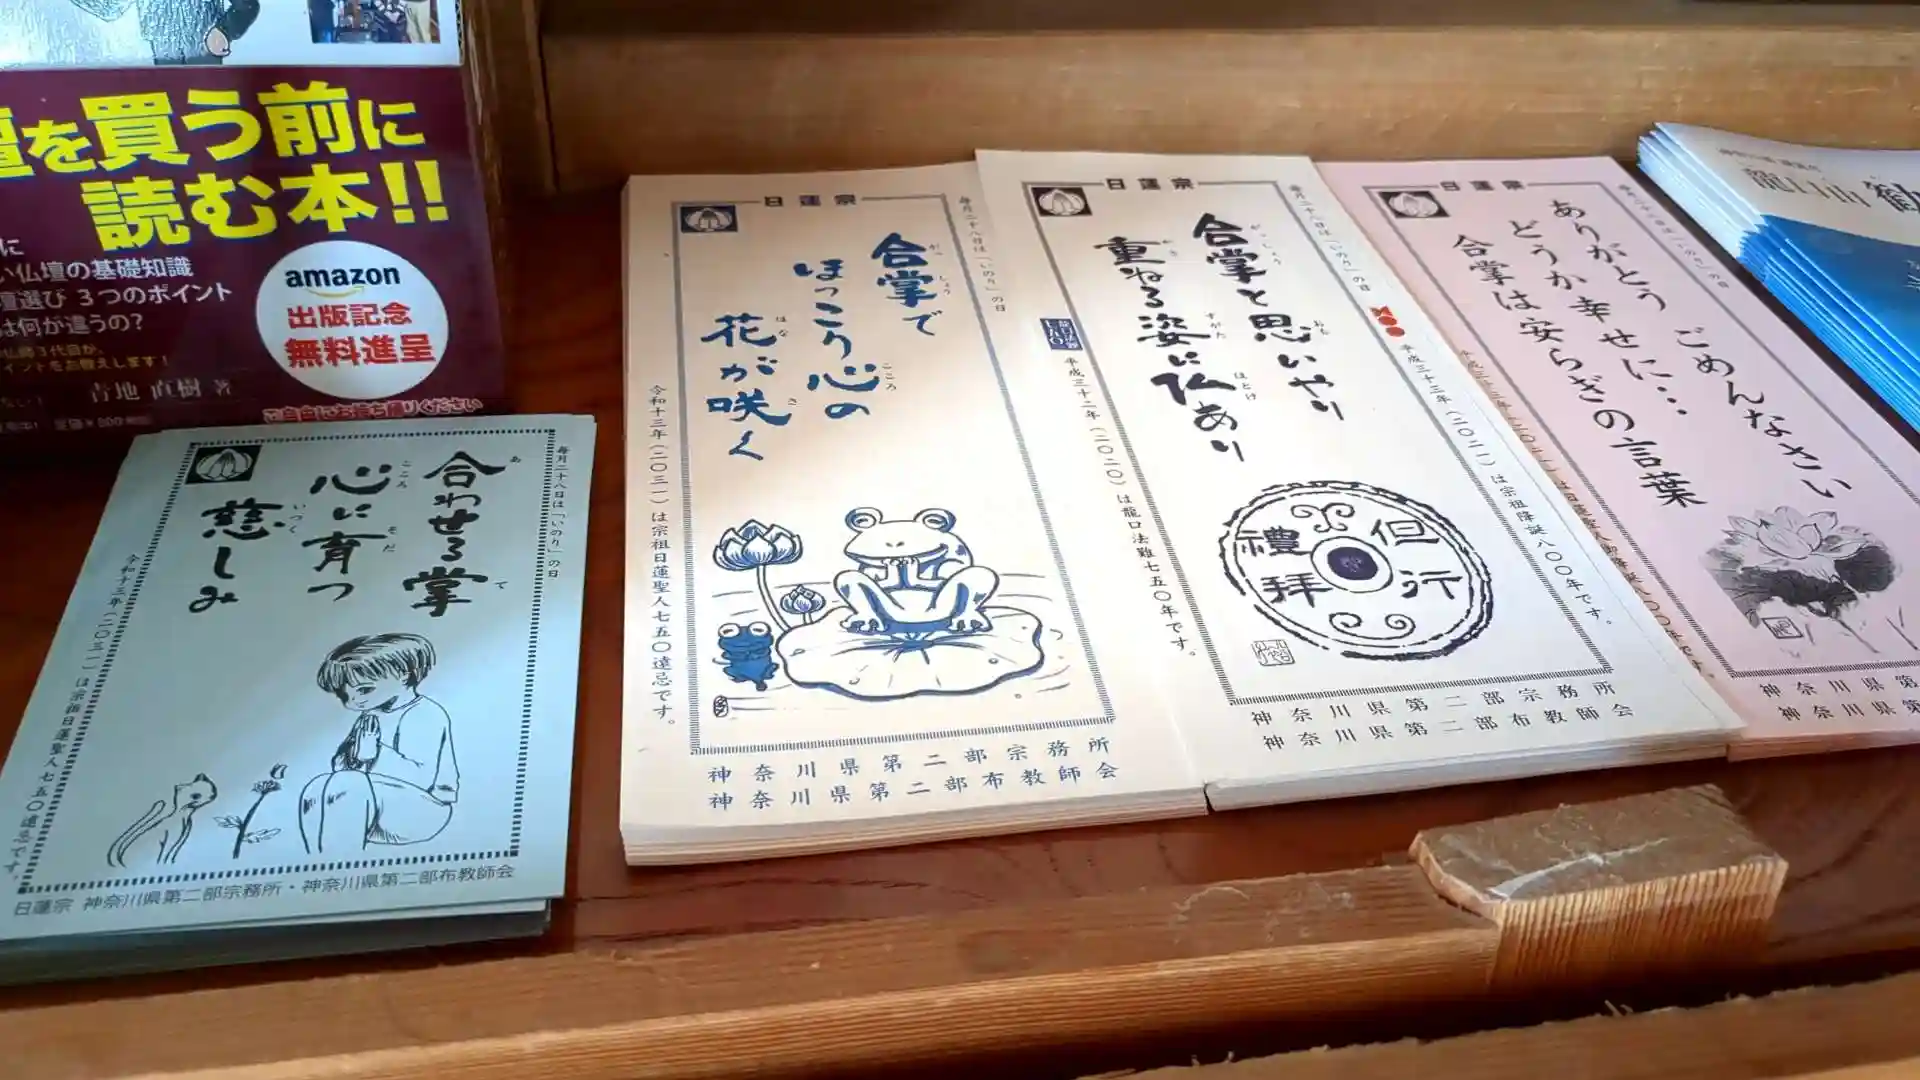 壇を買う前に
読む本!!
い仏壇の基礎知識
壇選び 3つのポイント
は何が違うの?
amazon
出版記念
無料進呈
青地 直樹 著
ご自由にお持ち帰りください
毎月二十八日は「いのり」の日
合わせる掌
心に育つ
慈しみ
令和十三年(二〇三一)は宗祖日蓮聖人七五〇遠忌です。
日蓮宗 神奈川県第二部宗務所・神奈川県第二部布教師会
日蓮宗
毎月二十八日は「いのり」の日
合掌で
ほっこり心の
花が咲く
令和十三年(二〇三一)は宗祖日蓮聖人七五〇遠忌です。
神奈川県第二部宗務所
神奈川県第二部布教師会
日蓮宗
毎月二十八日は「いのり」の日
合掌と思いやり
重ねる姿に仏あり
平成三十二年(二〇二〇)は龍口法難七五〇年です。
平成三十三年(二〇二一)は宗祖降誕八〇〇年です。
但行
禮拝
神奈川県第二部宗務所
神奈川県第二部布教師会
日蓮宗
ありがとう ごめんなさい
どうか幸せに…
合掌は安らぎの言葉
神奈川県第
神奈川県第
龍口山